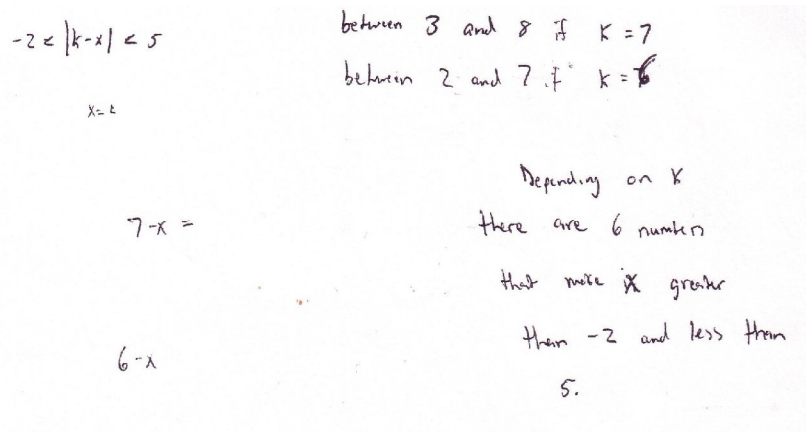 -2 < |k-x| < 5
between 3 and 8 if K = 7
between 2 and 7 if k = 6
x =
7-x =
6-x
Depending on K
there are 6 numbers
that make x greater
than -2 and less than
5.